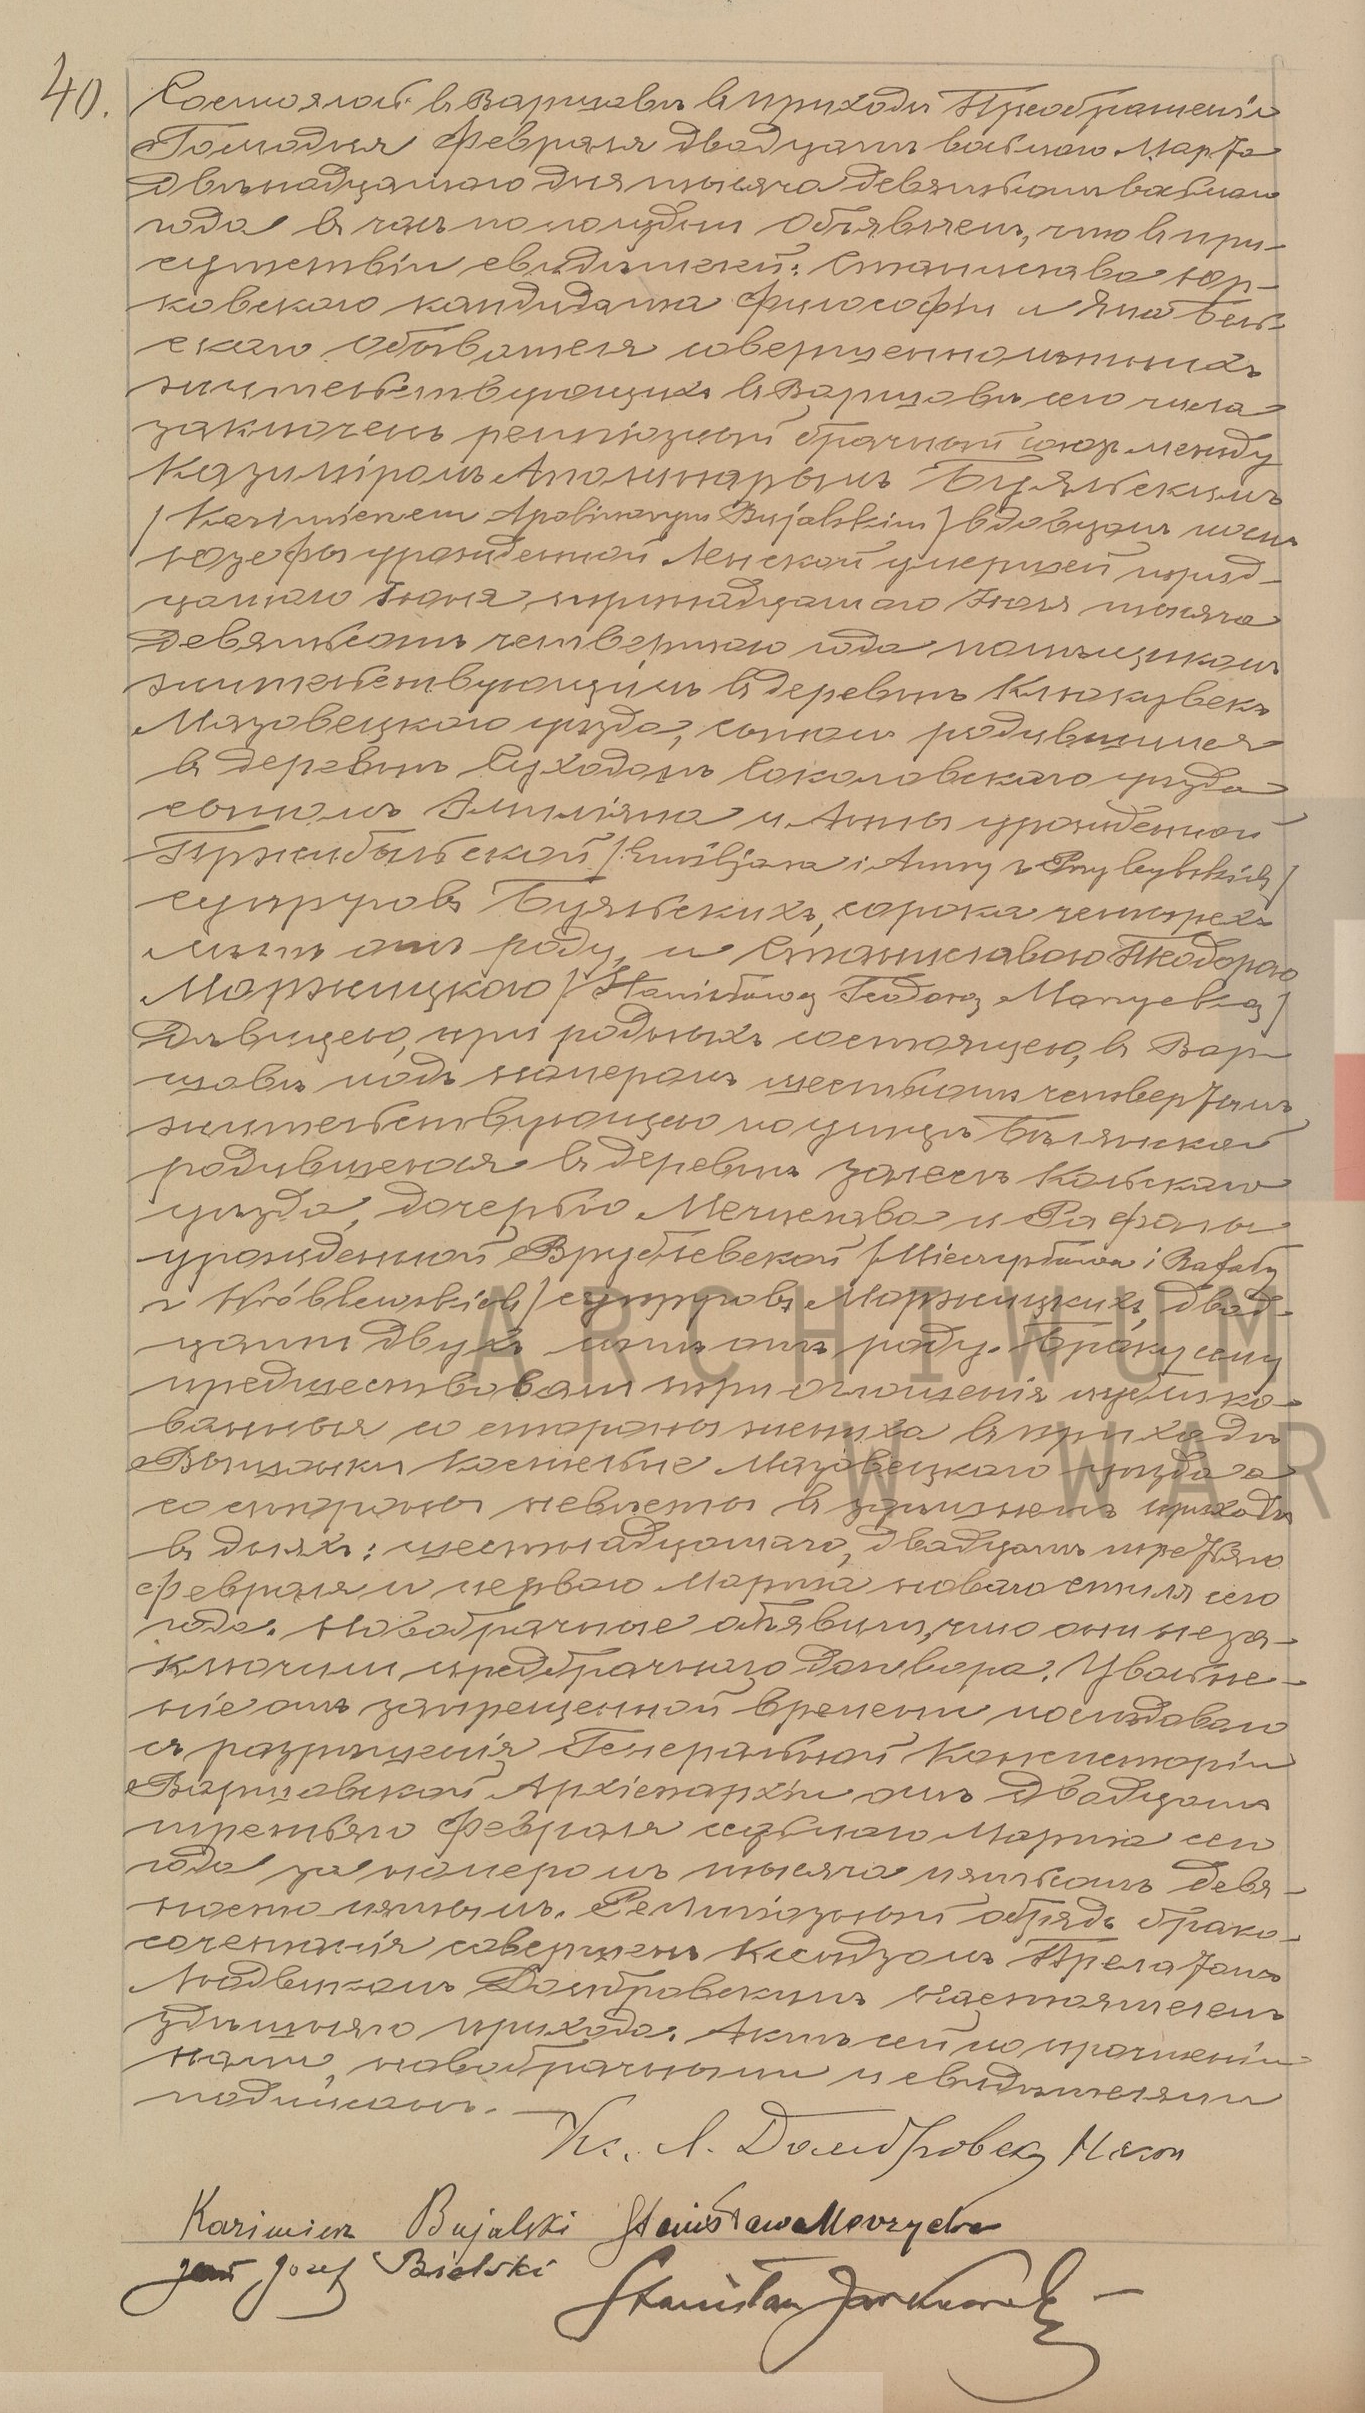 40.
Состоялось въ Варшавѣ въ приходѣ Преображенія
Господня Февраля двадцать восьмаго Марта
двѣнадцатаго дня тысяча девятьсотъ восьмаго
года въ часъ по полудни. Объявляемъ, что въ при-
сутствіи свидѣтелей: Станислава Юр-
ковскаго кандидата философіи и Яна Бель-
скаго обывателя совершеннолѣтнихъ
жительствующихъ въ Варшавѣ сего числа
заключенъ религіозный брачный союзъ между
Казиміромъ Аполинарымъ Буяльскимъ
/Kazimierzem Apolinarym Bujalskim/ вдовцомъ послѣ
Юзефы урожденной Ленской умершей трид-
цатаго Іюня тринадцатаго Іюля тысяча
девятьсотъ четвертаго года помѣщикомъ
жительствующимъ въ деревнѣ
Мазовецкаго уѣзда, родившимся
въ деревнѣ Суходолъ Соколовскаго уѣзда
сыномъ Эмиліяна и Анны урожденной
Пржибыльской /Emiljana i Anny z Przybylskich/
супруговъ Буяльскихъ, сорока четырехъ
лѣтъ отъ роду, и Станиславою Теодорою
Моржицкою /Stanisławą Teodorą Morzycką/
дѣвицею, при родныхъ состоящею, въ Вар-
шавѣ подъ номеромъ шестьсотъ четвертымъ
жительствующею по улицѣ Бѣлянской
родившеюся въ деревнѣ Кольскаго
уѣзда, дочерью Мечислава и Рафалы
урожденной Врублевской /Mieczysława i Rafały
z Wróblewskich/ супруговъ Моржицкихъ, двад-
цати двухъ лѣтъ отъ роду. Браку сему
предшествовали три оглашенія публико-
ванныя со стороны жениха въ приходѣ
Вышонки Косцельне Мазовецкаго уѣзда а
со стороны невѣсты въ здѣшнемъ приходѣ
въ дняхъ: шестнадцатаго, двадцать третьяго
Февраля и перваго Марта новаго стиля сего
года. Новобрачные объявили, что они не за-
ключили предбрачнаго договора. Увольне-
ніе отъ запрещенной времени послѣдовало
съ разрѣшенія Генеральной Консисторіи
Варшавской Архіепархіи отъ двадцать
третьяго Февраля седьмаго Марта сего
года за номеромъ тысяча пятьсотъ девя-
носто пятымъ. Религіозный обрядъ брако-
сочетанія совершенъ Ксендзомъ Прелатомъ
Людвикомъ Домбровскимъ настоятелемъ
здѣшняго прихода. Актъ сей по прочтеніи
нами, новобрачными и свидѣтелями
подписанъ. —
Кс. Л. Домбровскі
Kazimierz Bujalski Stanisława Morzycka
Jan Józef Bielski
Stanisław Jurkowski
ARCHIWUM
W WAR